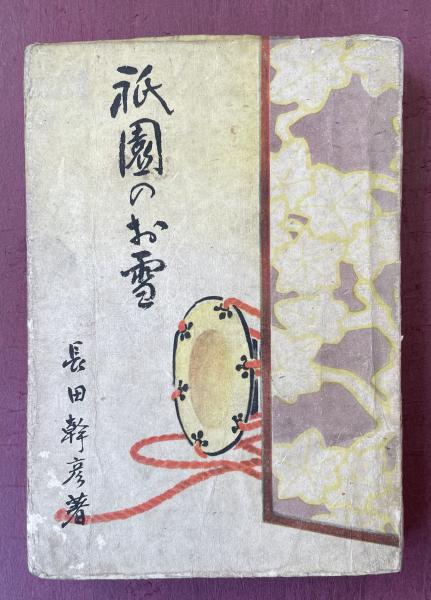 祇園のお雪
長田幹彦著